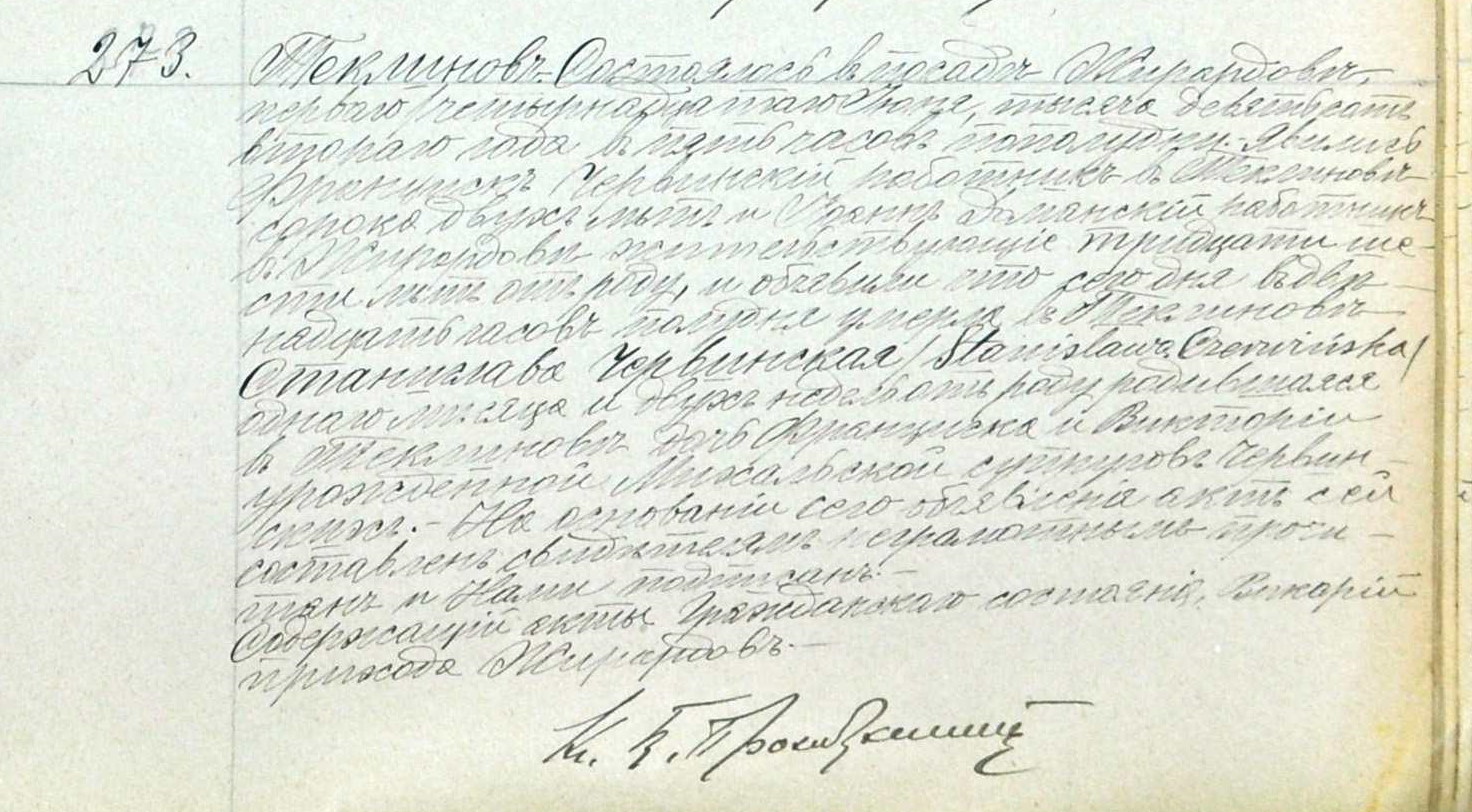 273.
Теклиновъ. Состоялось въ посадѣ Жирардовѣ,
перваго/четырнадцатаго Іюня, тысяча девятьсотъ
втораго года, въ пять часовъ пополудни. Явились
Францискъ Червинскій работникъ въ Теклиновѣ
сорока двухъ лѣтъ и Доманскій работникъ
въ Жирардовѣ жительствующіе тридцати ше-
сти лѣтъ отъ роду, и объявили что сего дня въ двѣ-
надцать часовъ полудня умерла въ Теклиновѣ
Станислава Червинская /Stanisława Czerwińska/
одного мѣсяца и двухъ недѣль отъ роду родившаяся
въ Теклиновѣ дочь Франциска и Викторіи
урожденной Михальской супруговъ Червин-
скихъ. - На основаніи сего объявленія актъ сей
составленъ свидѣтелямъ неграмотнымъ прочи-
танъ и Нами подписанъ. -
Содержащій акты Гражданскаго состоянія, Викарій
прихода Жирардовъ. -
Кс. Б.